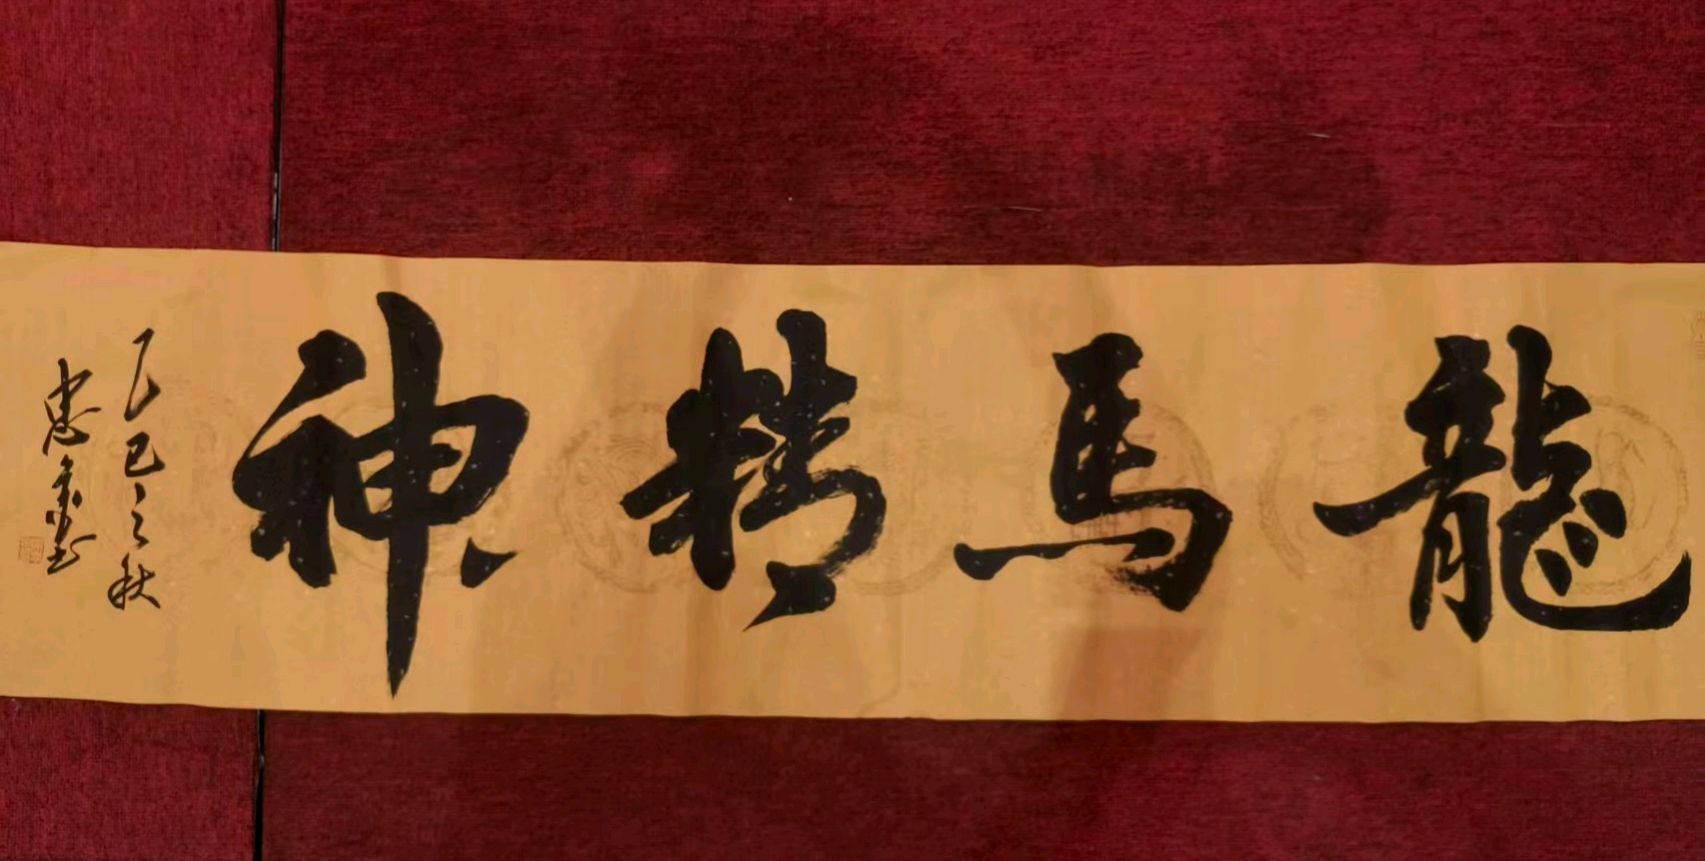 龍馬精神
乙巳之秋
忠金書